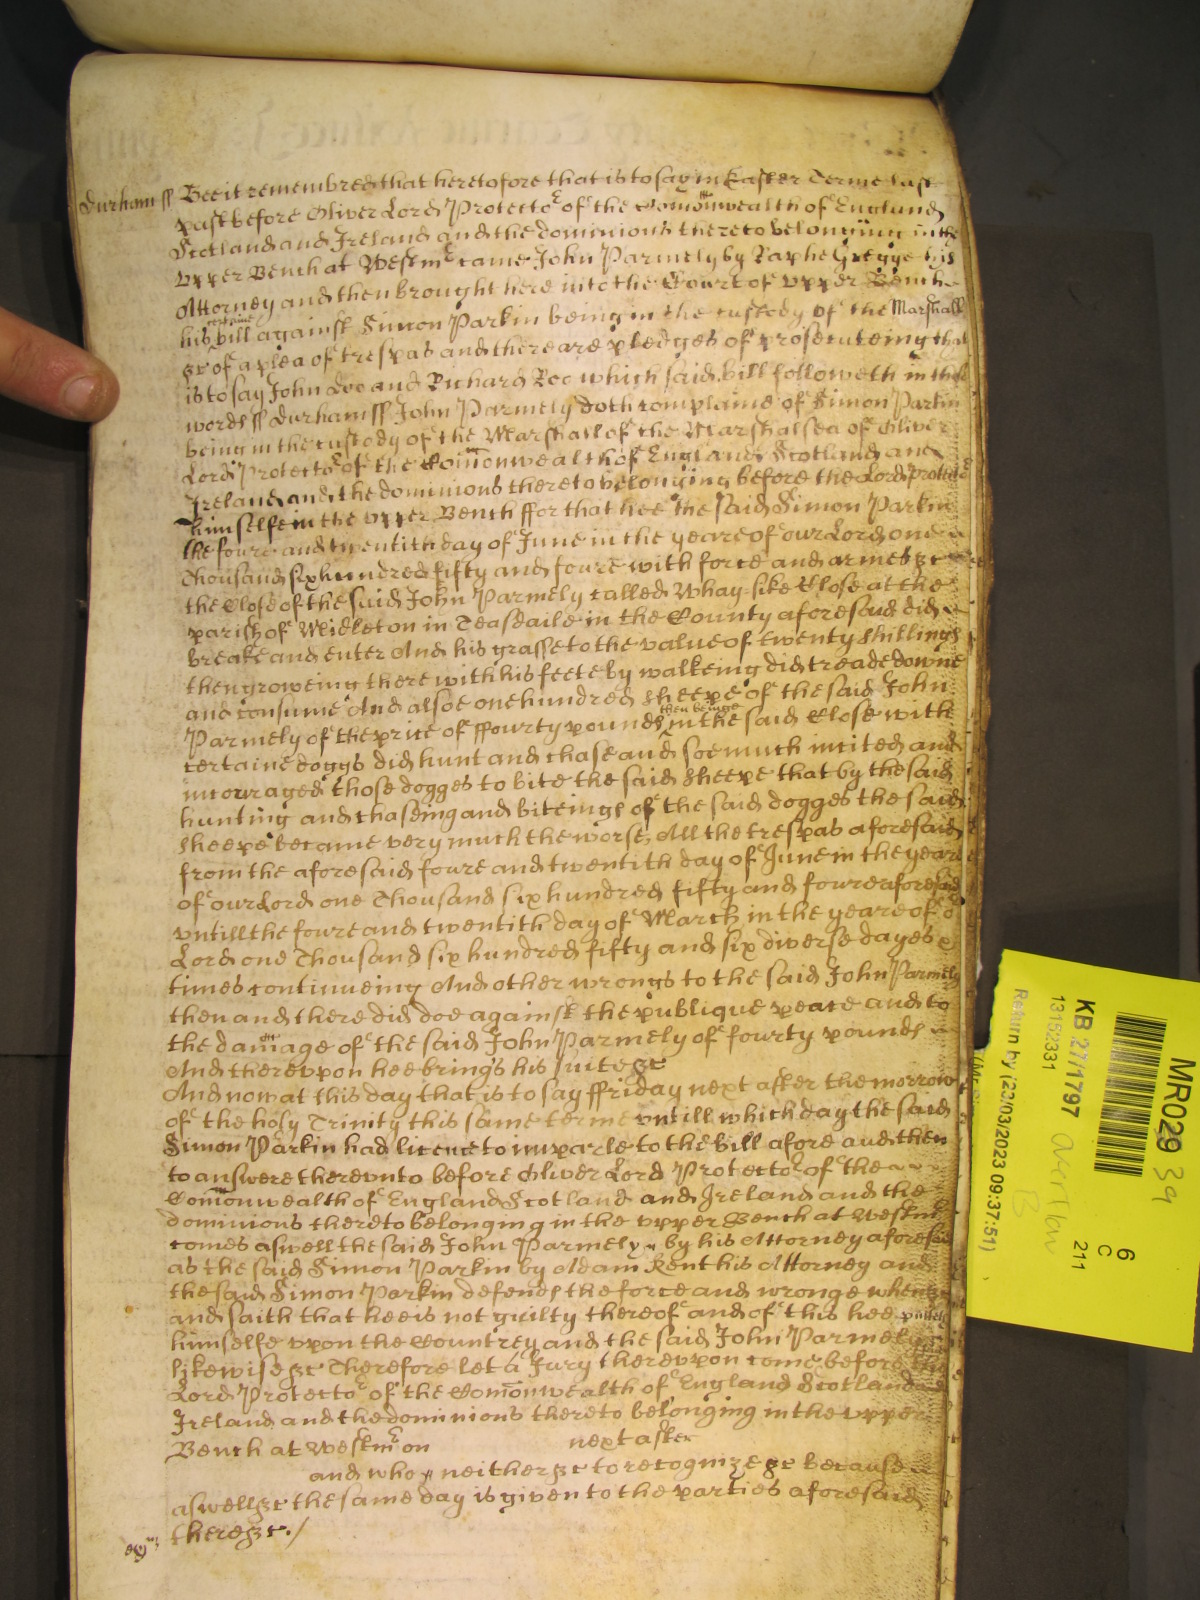 Durham ss Bee it remembred that heretofore that is to say in Easter Terme last
past before Oliver Lord Protector of the Comonwealth of England
Scotland and Ireland and the dominions thereto belonging in the
upper Bench at Westmr came John Parmely by Raphe Gregge his
Attorney and then brought here into the Court of upper Bench
his certaine bill against Simon Parkin being in the custody of the Marshall
&c of a plea of trespas and there are pledges of prosecuteing that
is to say John Doe and Richard Roe which said bill followeth in these
words ss Durham ss John Parmely doth complaine of Simon Parkin
being in the custody of the Marshall of the Marshalsea of Oliver
Lord Protector of the Comonwealth of England Scotland and
Ireland and the dominions thereto belonging before the Lord Protector
himselfe in the upper Bench ffor that hee the said Simon Parkin
the foure and twentith day of June in the yeare of our Lord one
Thousand six hundred fifty and foure with force and armes &c
the Close of the said John Parmely called Whay-sike Close at the
parish of Midleton in Teasdaile in the County aforesaid did
breake and enter And his grasse to the value of twenty shillings
then groweing there with his feete by walkeing did treade downe
and consume And alsoe one hundred sheepe of the said John
Parmely of the price of ffourty pounds then being in the said Close with
certaine doggs did hunt and chase and soe much incited and
incouraged those dogges to bite the said sheepe that by the said
hunting and chaseing and biteings of the said dogges the said
sheepe became very much the worse, All the trespas aforesaid
from the aforesaid foure and twentith day of June in the yeare
of our Lord one Thousand six hundred fifty and foure aforesaid
untill the foure and twentith day of March in the yeare of or
Lord one Thousand six hundred fifty and six diverse dayes &
times continueing And other wrongs to the said John Parmely
then and there did doe against the publique peace and to
the damage of the said John Parmely of fourty pounds
And thereupon hee brings his suite &c
And now at this day that is to say ffriday next after the morrow
of the holy Trinity this same terme untill which day the said
Simon Parkin had licence to imparle to the bill afore and then
to answere thereunto before Oliver Lord Protector of the
Comonwealth of England Scotland and Ireland and the
dominions thereto belonging in the upper Bench at Westmr
comes aswell the said John Parmely by his Attorney aforesaid
as the said Simon Parkin by Adam Kent his Attorney and
the said Simon Parkin defends the force and wronge when &c
and saith that hee is not guilty thereof and of this hee putteth
himselfe upon the Countrey and the said John Parmely
likewise &c Therefore let a Jury thereupon come before the
Lord Protector of the Comonwealth of England Scotland and
Ireland and the dominions thereto belonging in the upper
Bench at Westmr on next after
and who neither &c to recognize &c Because
aswell &c the same day is given to the parties aforesaid
there &c./
MR029 39
KB 27/1797
13152331
Return by (22/03/2023 09:37:51)
6
C
211